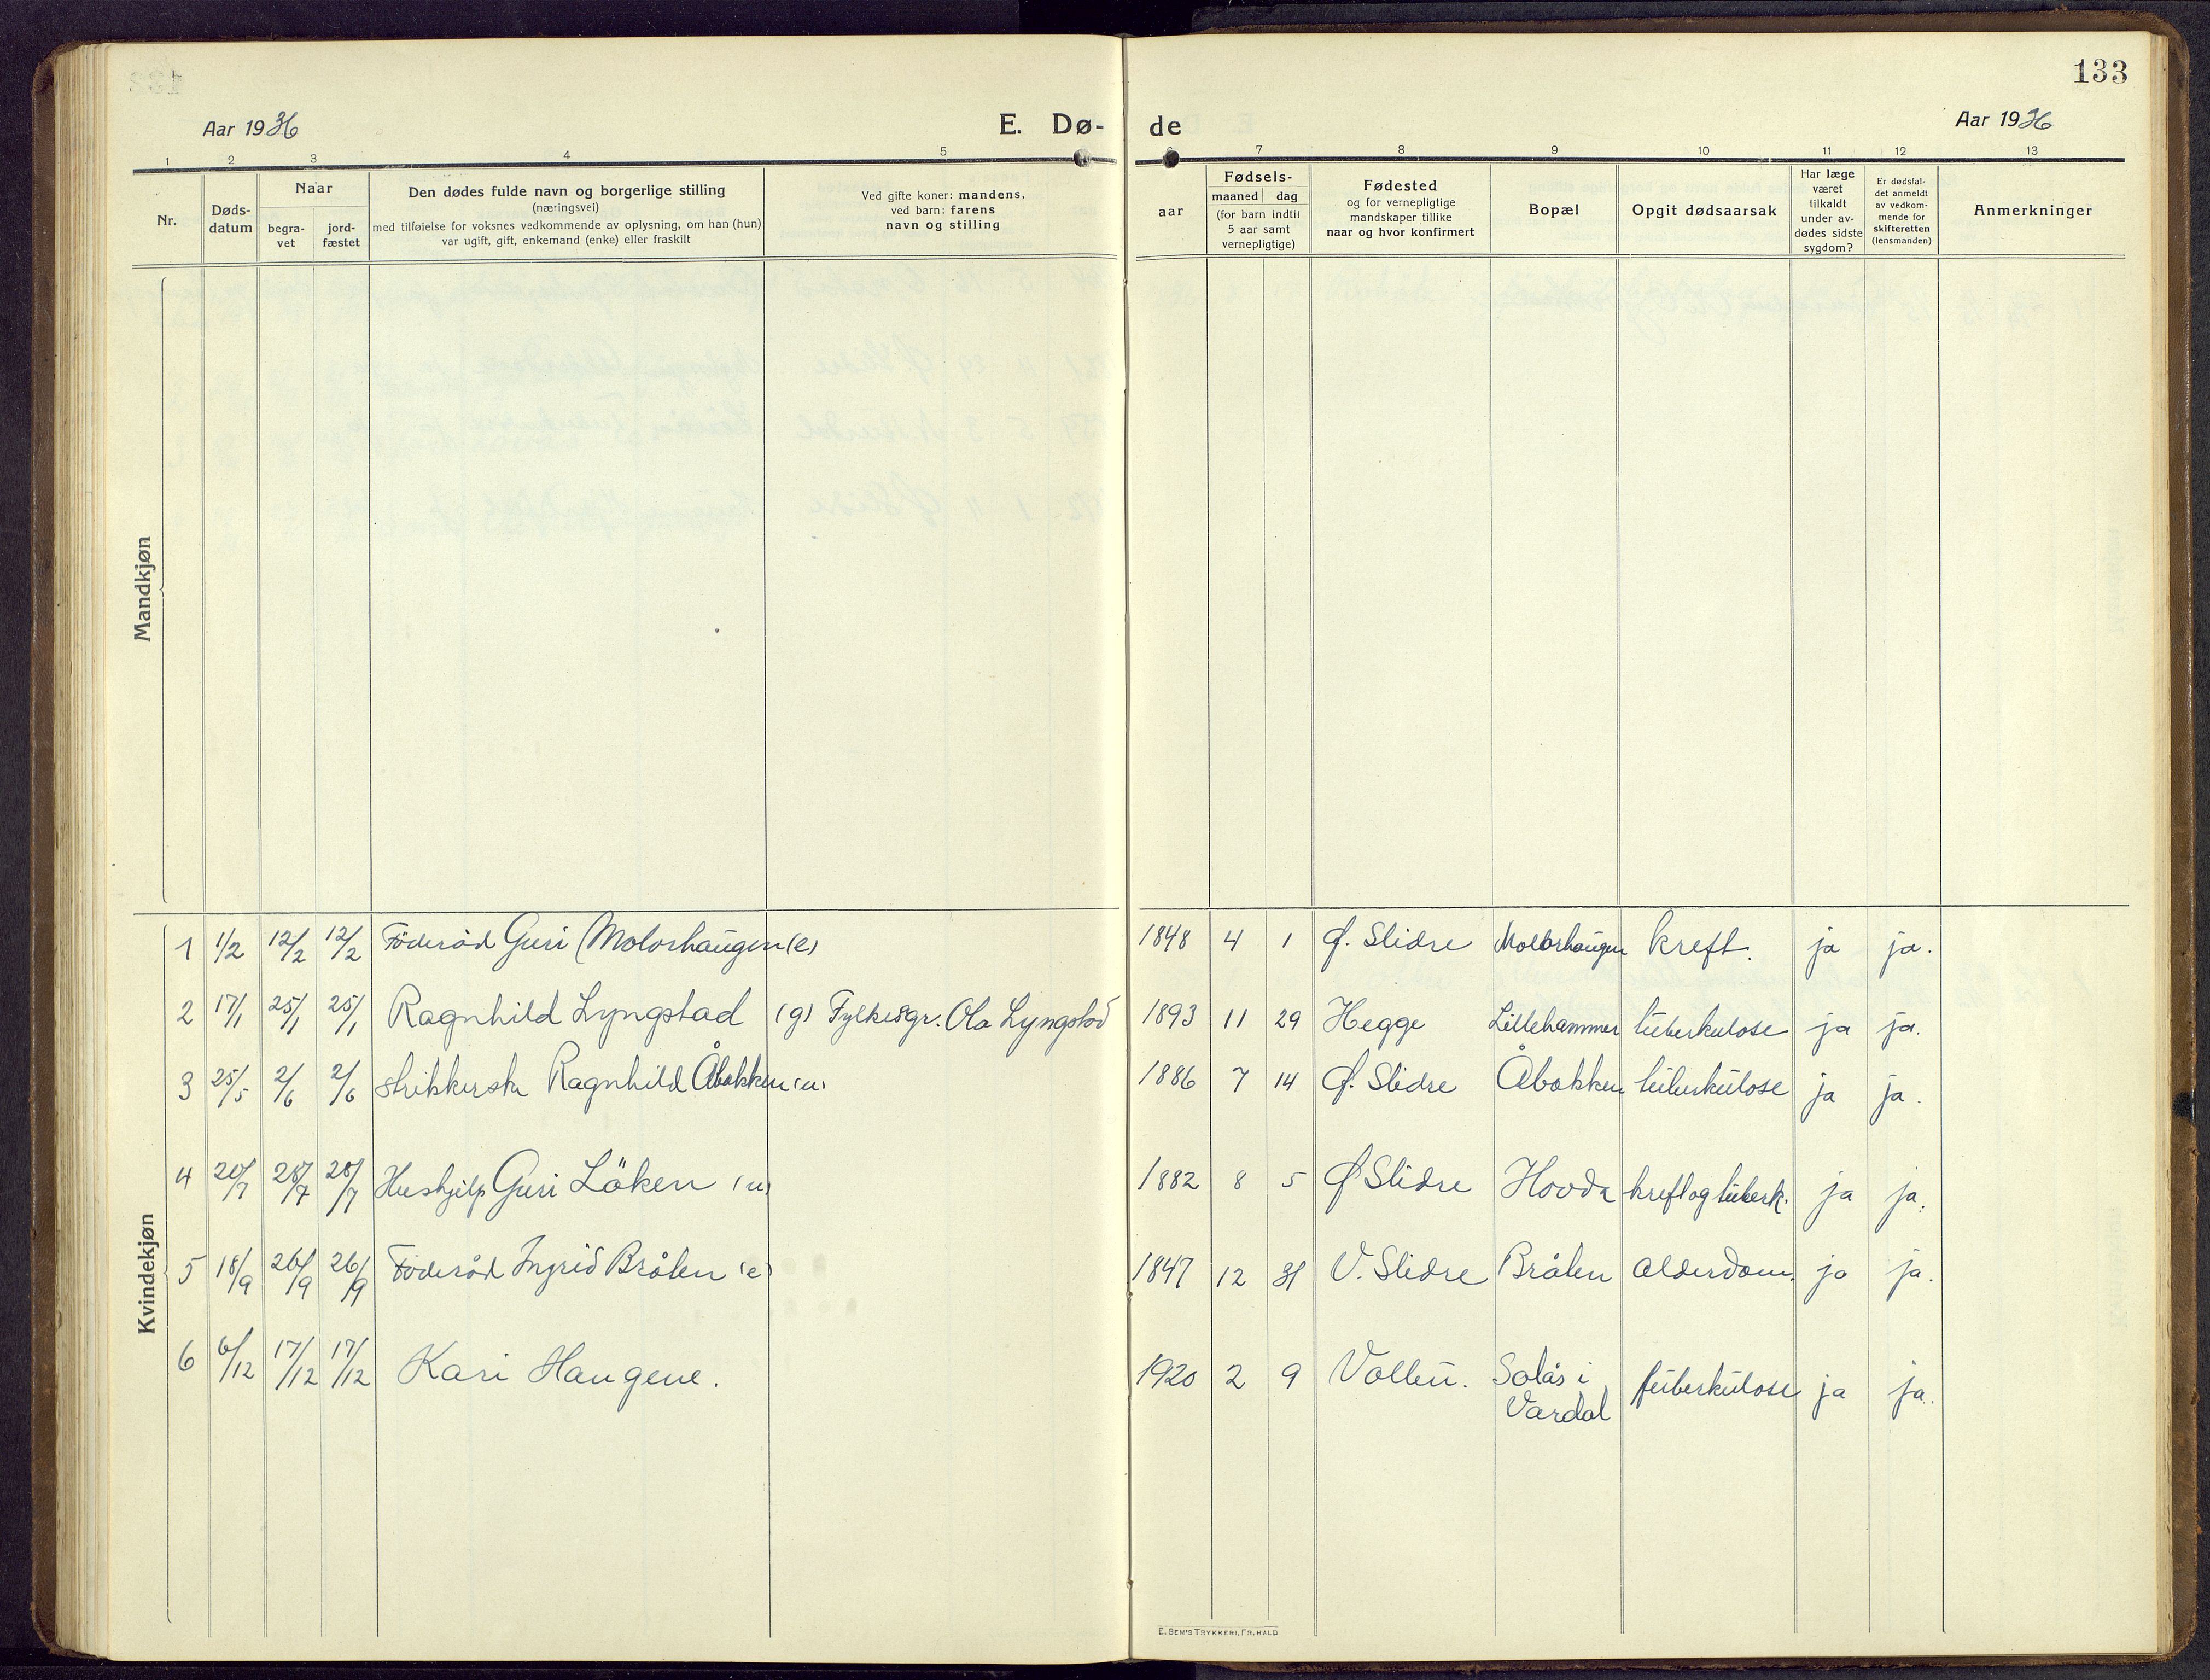 133
Aar 1936
E. Dø-
de
Aar 1936
1 2 3 4 5 6 7 8 9 10 11 12 13
Nr.
Døds-
datum
Naar
begra-
vet
jord-
fæstet
Den dødes fulde navn og borgerlige stilling
(næringsvei)
med tilføielse for voksnes vedkommende av oplysning, om han (hun)
var ugift, gift, enkemand (enke) eller fraskilt
Ved gifte koner: mandens,
ved barn: farens
navn og stilling
aar
Fødsels-
maaned dag
(for barn indtil
5 aar samt
vernepligtige)
Fødested
og for vernepligtige
mandskaper tillike
naar og hvor konfirmert
Bopæl
Opgit dødsaarsak
Har læge
været
tilkaldt
under av-
dødes sidste
sygdom?
Er dødsfal-
det anmeldt
av vedkom-
mende for
skifteretten
(lensmanden)
Anmerkninger
Mandkjøn
Kvindekjøn
1 1/2 12/2 12/2 Föderåd Guri Molorhaugen (e) 1848 4 1 Ø. Slidre Molorhaugen kreft. ja ja.
2 17/1 25/1 25/1 Ragnhild Lyngstad (g) Fylkesgr. Ola Lyngstad 1893 11 29 Hegge Lillehammer tuberkulose ja ja.
3 25/5 2/6 2/6 strikkerske Ragnhild Åbakken (u) 1886 7 14 Ø. Slidre Åbakken tuberkulose ja ja.
4 20/7 28/7 28/7 Hushjelp Guri Löken (u) 1882 8 5 Ø Slidre Hovda kreft og tuberk. ja ja.
5 18/9 26/9 26/9 Föderåd Ingrid Bråten (e) 1847 12 31 V. Slidre Bråten alderdom. ja ja.
6 6/12 17/12 17/12 Kari Haugene. 1920 2 9 Vollen. Solås i
Vardal tuberkulose ja ja.
E. SEM'S TRYKKERI, FR.HALD